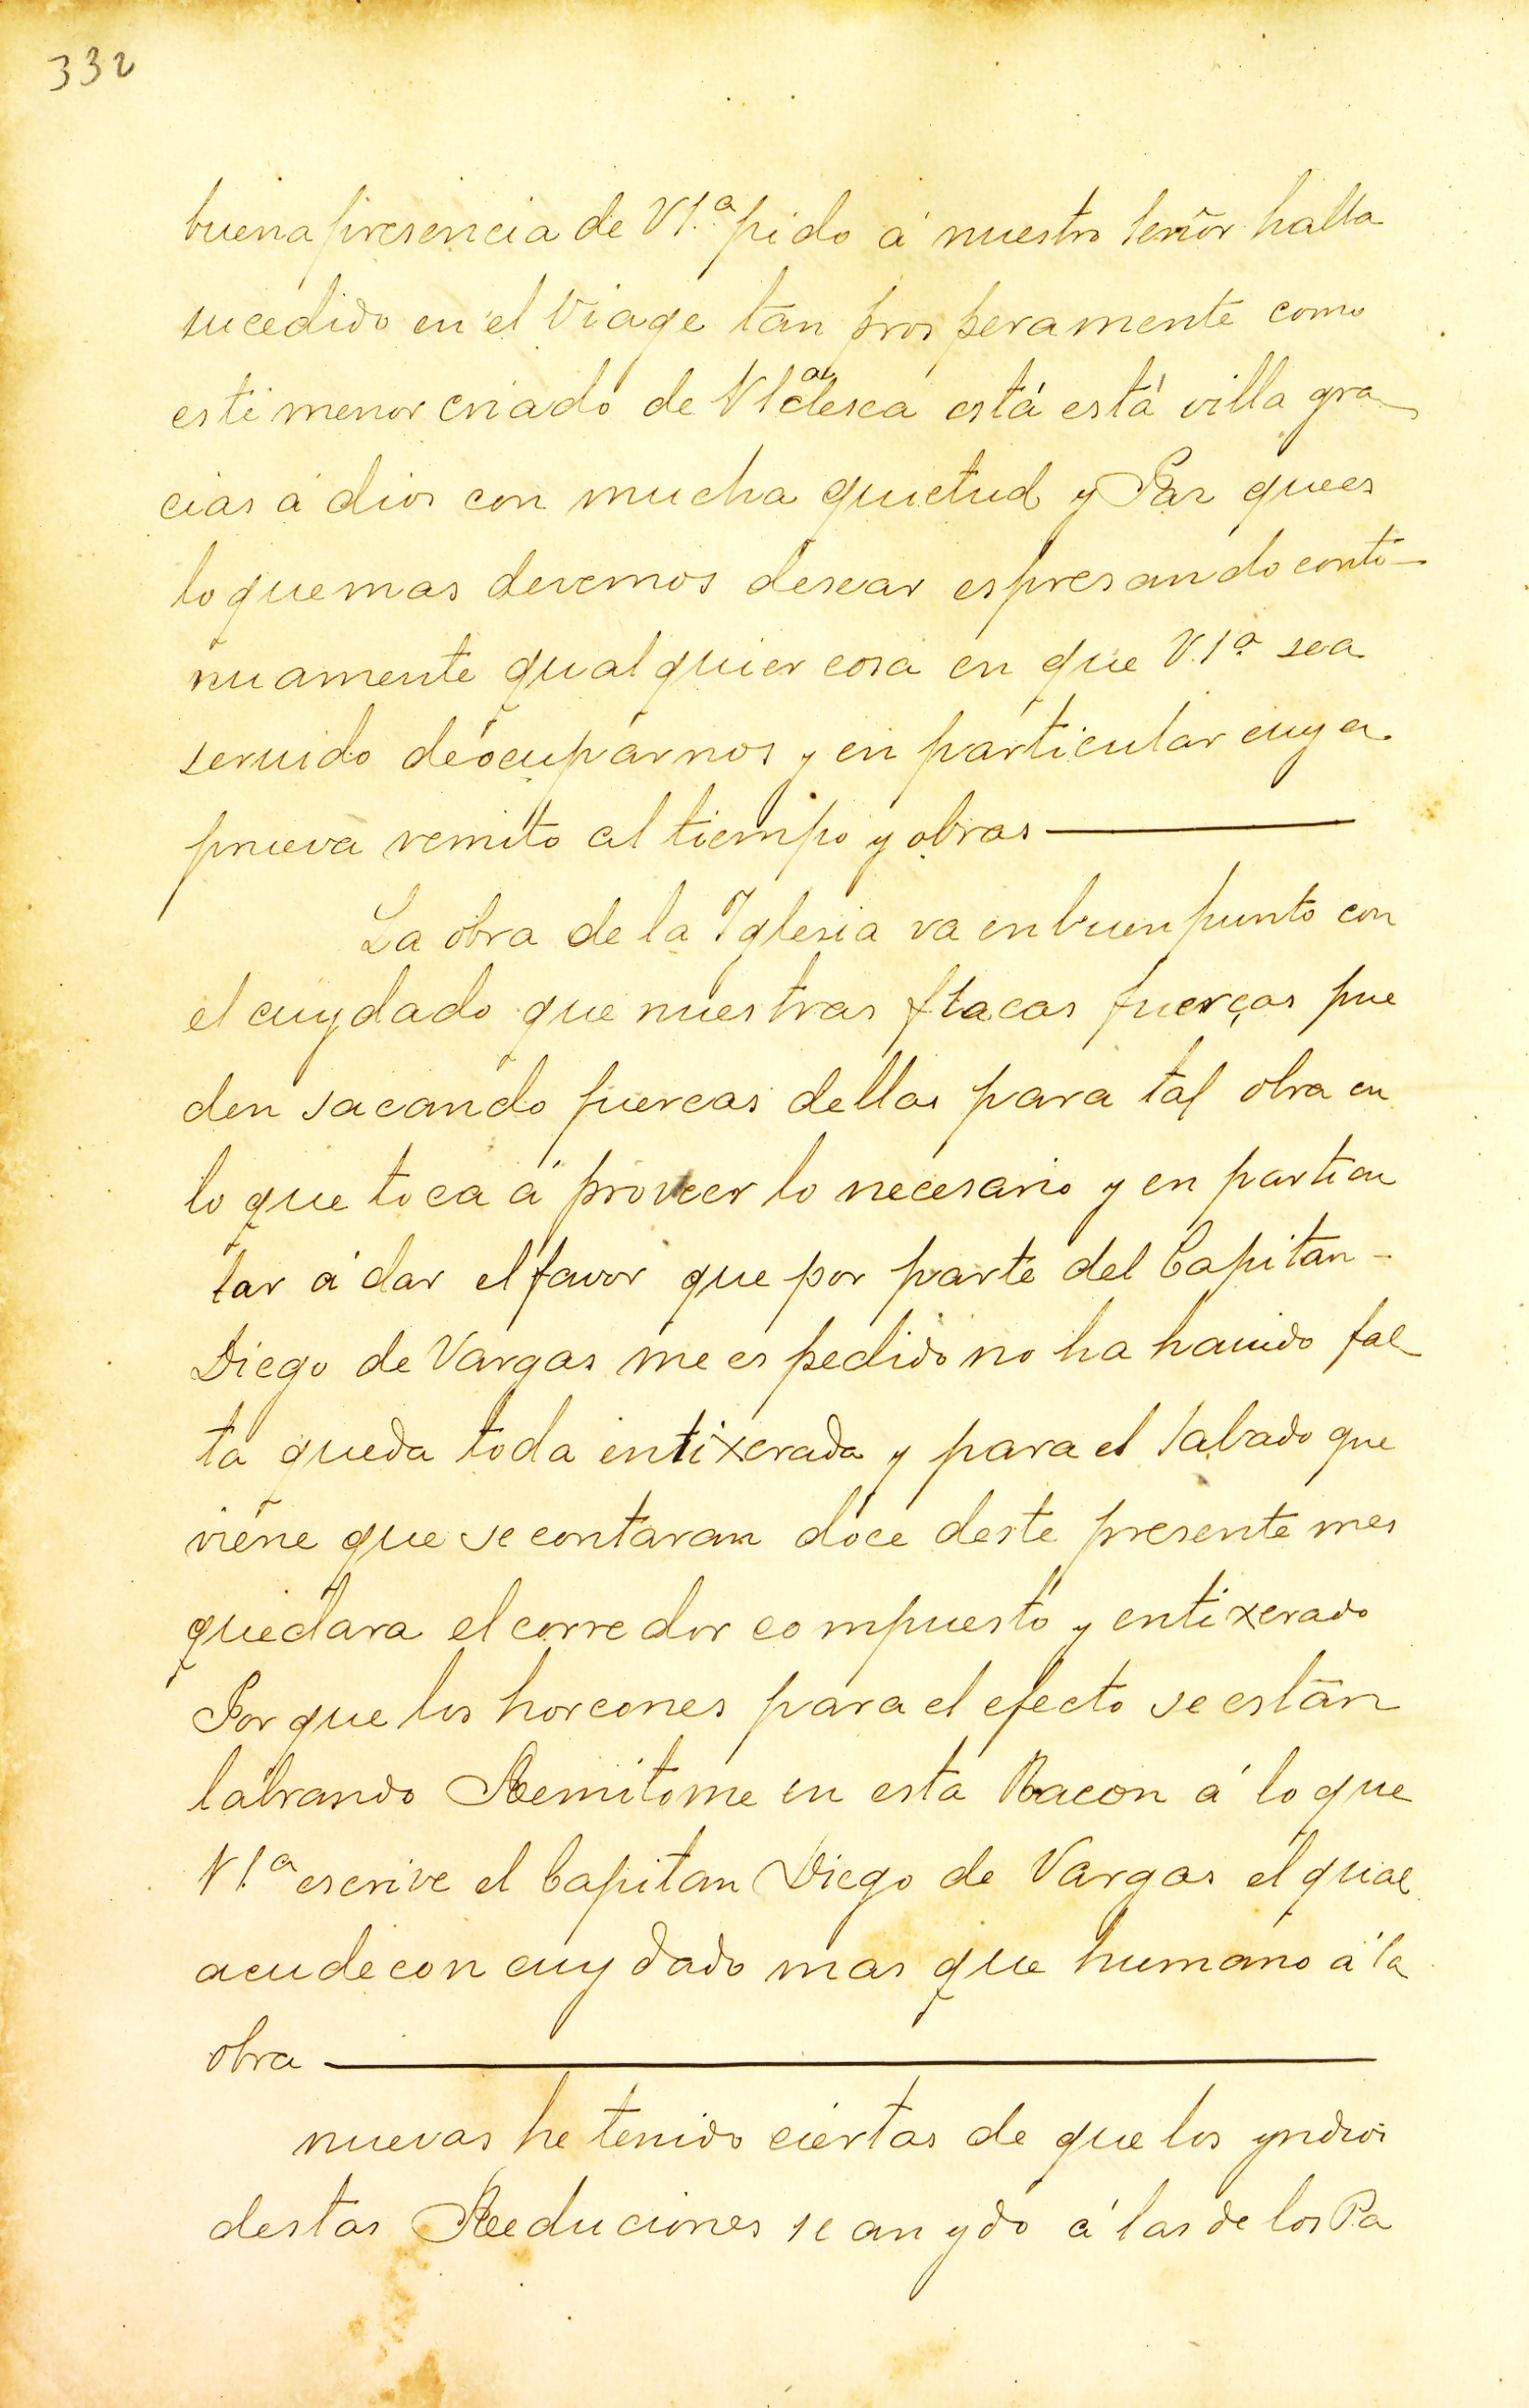 332
buena presencia de VSª pido á nuestro señor halla
sucedido en el Viage tan prosperamente como
este menor criado de VSª desea está está villa gra
cias á dios con mucha quietud y Paz quees
lo que mas devemos desear espresando conti-
nuamente qualquier cosa en que V.Sª sea
seruido de ocuparnos y en particular cuya
prueva remito al tiempo y obras ———
La obra de la Iglesia va en buen punto con
el cuydado que nuestras flacas fuerças pue
den sacando fuercas dellas para tal obra en
lo que toca á proveer lo necesario y en particu
lar á dar el favor que por parte del Capitan -
Diego de Vargas me es pedido no ha hauido fal
ta queda toda entixerada y para el Sabado que
viene que se contaran doce deste presente mes
quedara el corredor compuesto y entixerado
Porque los horcones para el efecto se están
labrando Remitome en esta Racon á lo que
VSª escrive el Capitan Diego de Vargas el qual
acude con cuydado mas que humano á la
obra ———
nuevas he tenido ciertas de que los yndios
destas Reduciones se an ydo á las de los Pa